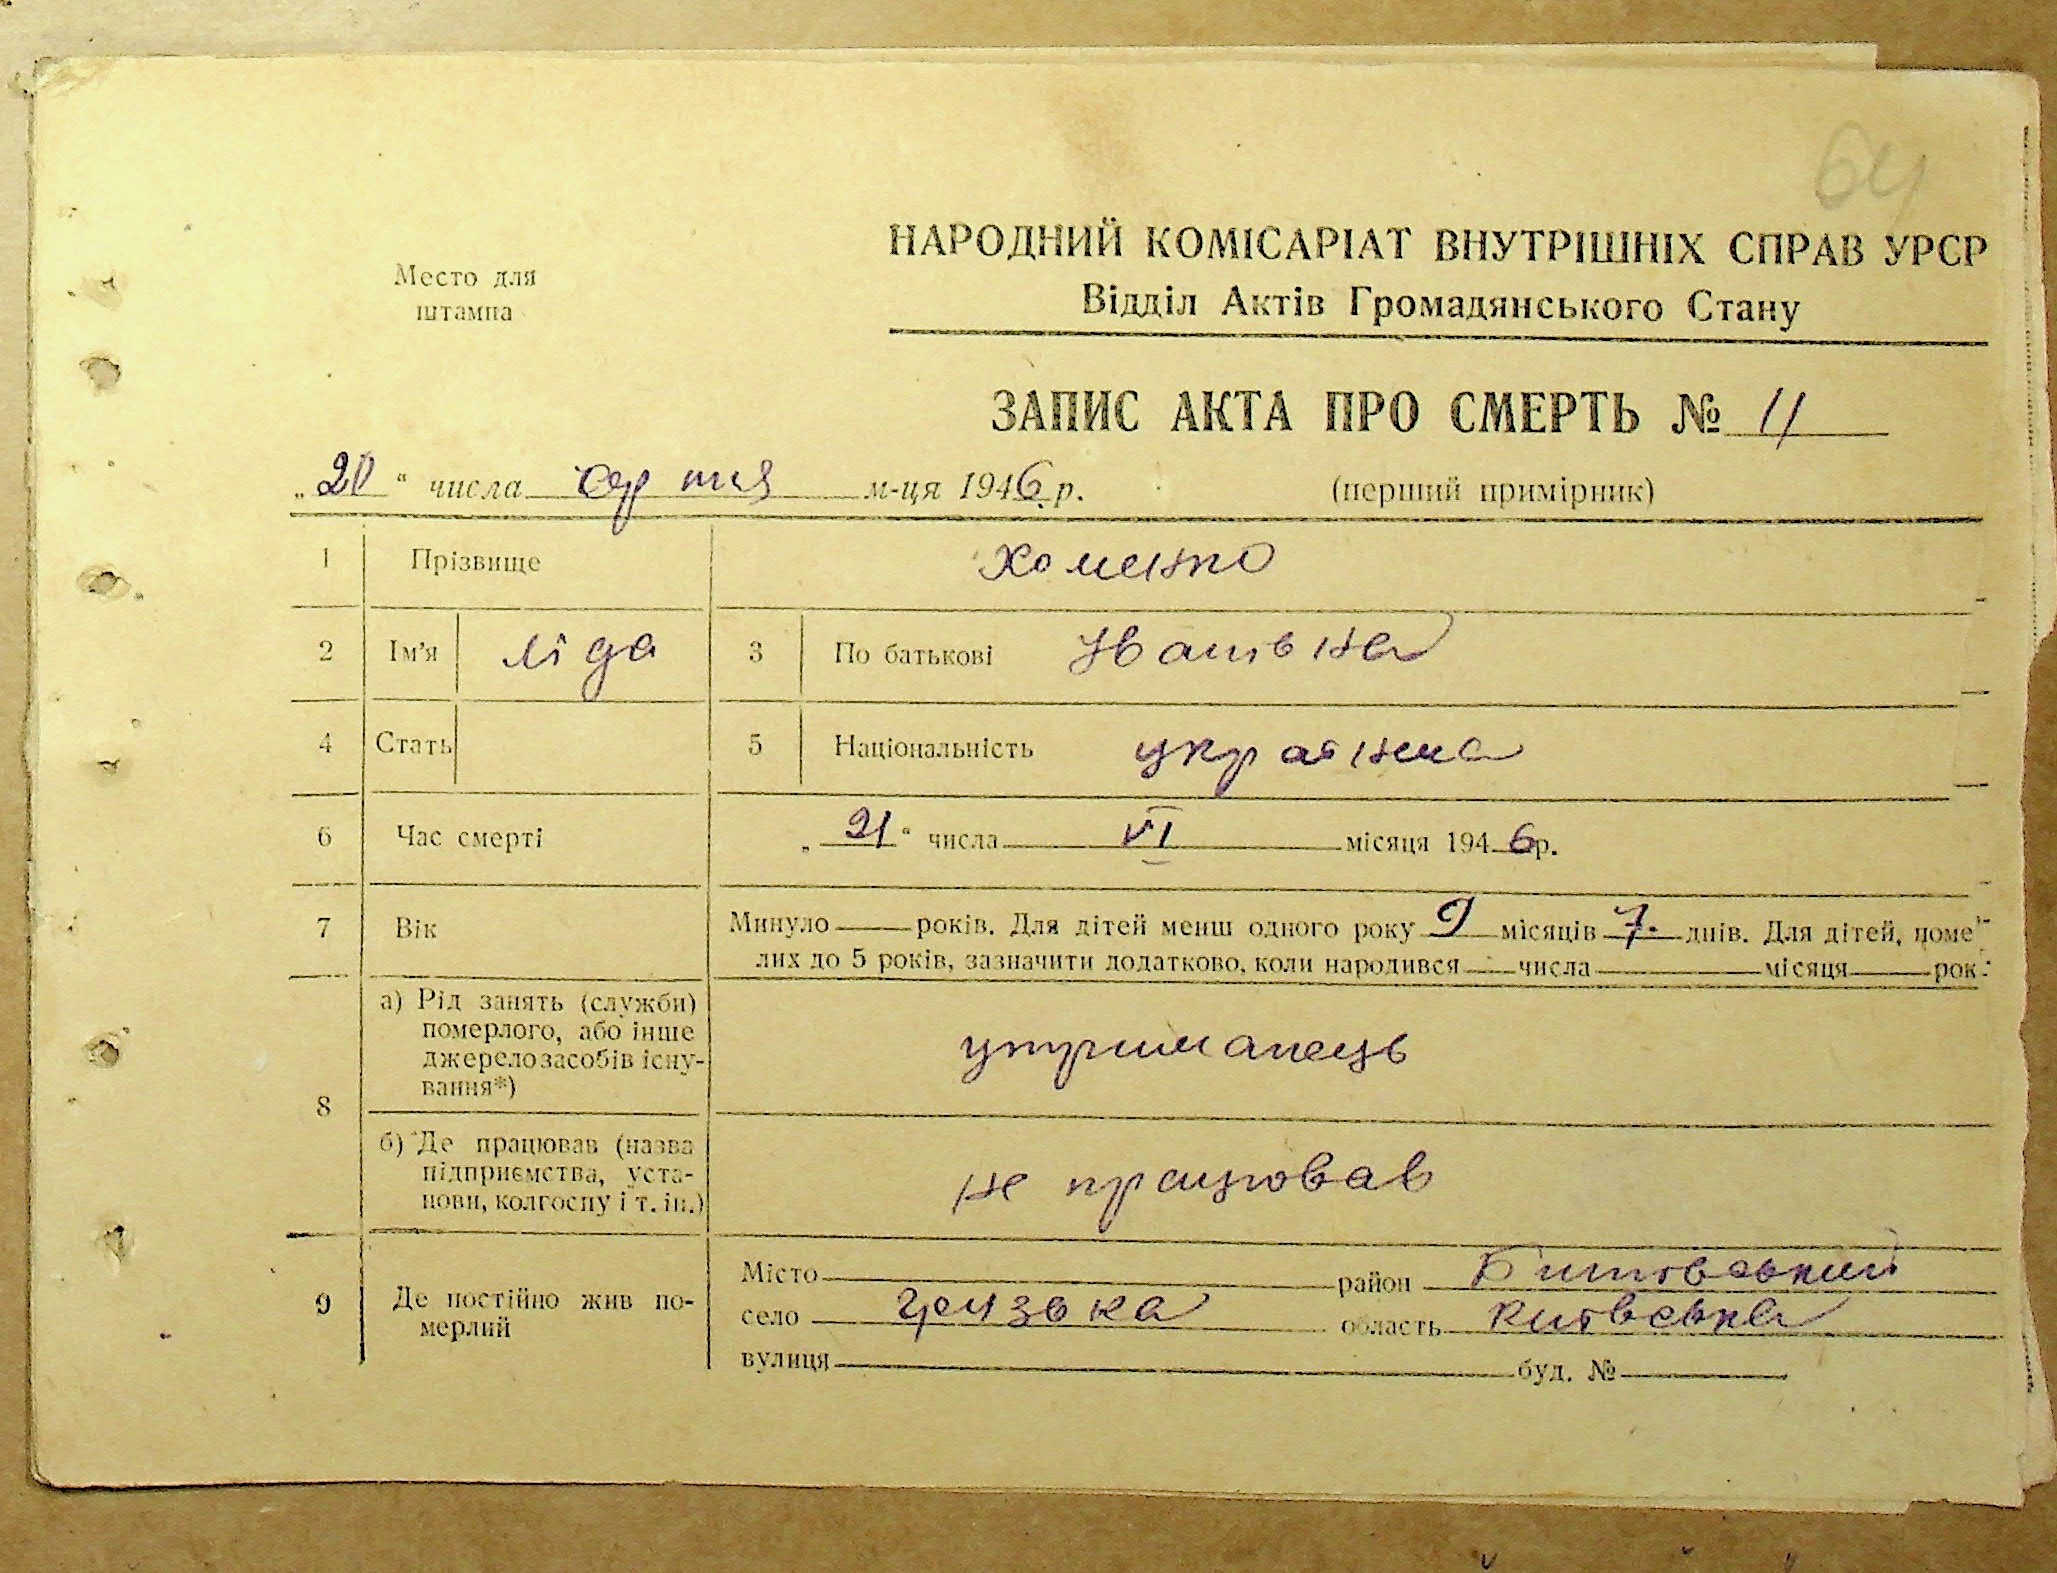 64
Место для
штампа
НАРОДНИЙ КОМІСАРІАТ ВНУТРІШНІХ СПРАВ УРСР
Відділ Актів Громадянського Стану
ЗАПИС АКТА ПРО СМЕРТЬ № 11
„20“ числа серпня м-ця 1946 р. (перший примірник)
1 Прізвище Хоменко
2 Ім'я Ліда 3 По батькові Іванівна
4 Стать 5 Національність українка
6 Час смерті „21“ числа VI місяця 1946 р.
7 Вік Минуло — років. Для дітей менш одного року 9 місяців 7. днів. Для дітей, поме
лих до 5 років, зазначити додатково, коли народився числа місяця рок
8 а) Рід занять (служби)
померлого, або інше
джерело засобів існу-
вання*) утриманець
б) Де працював (назва
підприємства, уста-
нови, колгоспу і т. ін.) не працював
9 Де постійно жив по-
мерлий
Місто район Бишівський
село Грузька область Київська
вулиця буд. №